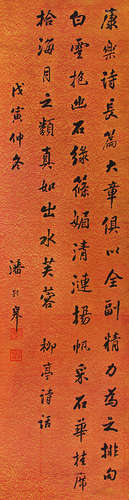 康樂詩長篇大章俱以全副精力為之
白雲抱幽石綠篠媚清漣揚帆采石華挂席
拾海月之類真如出水芙蓉 柳亭詩話
戊寅仲冬
潘齡皋